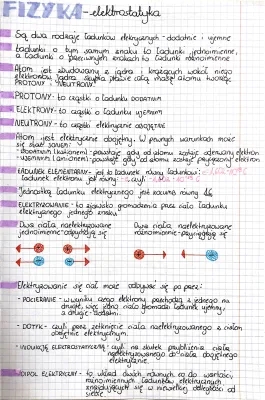 FIZYKA - elektrostatyka
Są dwa rodzaje ładunków elektrycznych - dodatnie i ujemne
Ładunki o tym samym znaku to ładunki jednoimienne,
a ładunki o przeciwnych znakach to ładunki różnoimienne
Atom jest zbudowany z jądra i krążących wokół niego
elektronów. Jądro skupia prawie całą masę atomu tworząc
PROTONY i NEUTRONY.
PROTONY - to cząstki o ładunku DODATNIM
ELEKTRONY - to cząstki o ładunku UJEMNYM
NEUTRONY - to cząstki elektrycznie OBOJĘTNE
Atom jest elektrycznie obojętny. W pewnych warunkach może
się stać jonem:
- DODATNIM (kationem) - powstaje, gdy od atomu zostaje oderwany elektron
- UJEMNYM (anionem) - powstaje gdy do atomu zostaje przyłączony elektron
ŁADUNEK ELEMENTARNY - jest to ładunek równy ładunkowi
ładunek elektronu jest równy czyli
Jednostką ładunku elektrycznego jest kulomb równy 1C
ELEKTRYZOWANIE - to zjawisko gromadzenia przez ciało ładunku
elektrycznego jednego znaku
Dwa ciała naelektryzowane
jednoimiennie odpychają się
Dwa ciała naelektryzowane
różnoimiennie - przyciągają się
Elektryzowanie się ciał może odbywać się poprzez:
- POCIERANIE - w wyniku czego elektrony przechodzą z jednego na
drugie, więc jedno ciało gromadzi ładunek ujemny,
a drugie - dodatni.
- DOTYK - czyli przez zetknięcie ciała naelektryzowanego z ciałem
obojętnie elektrycznym.
- INDUKCJĘ ELEKTROSTATYCZNĄ - czyli na skutek przybliżenia ciała
naelektryzowanego do ciała obojętnego
elektrycznie.
DIPOL ELEKTRYCZNY - to układ dwóch równych co do wartości
różnoimiennych ładunków elektrycznych
znajdujących się w niewielkiej odległości od
siebie